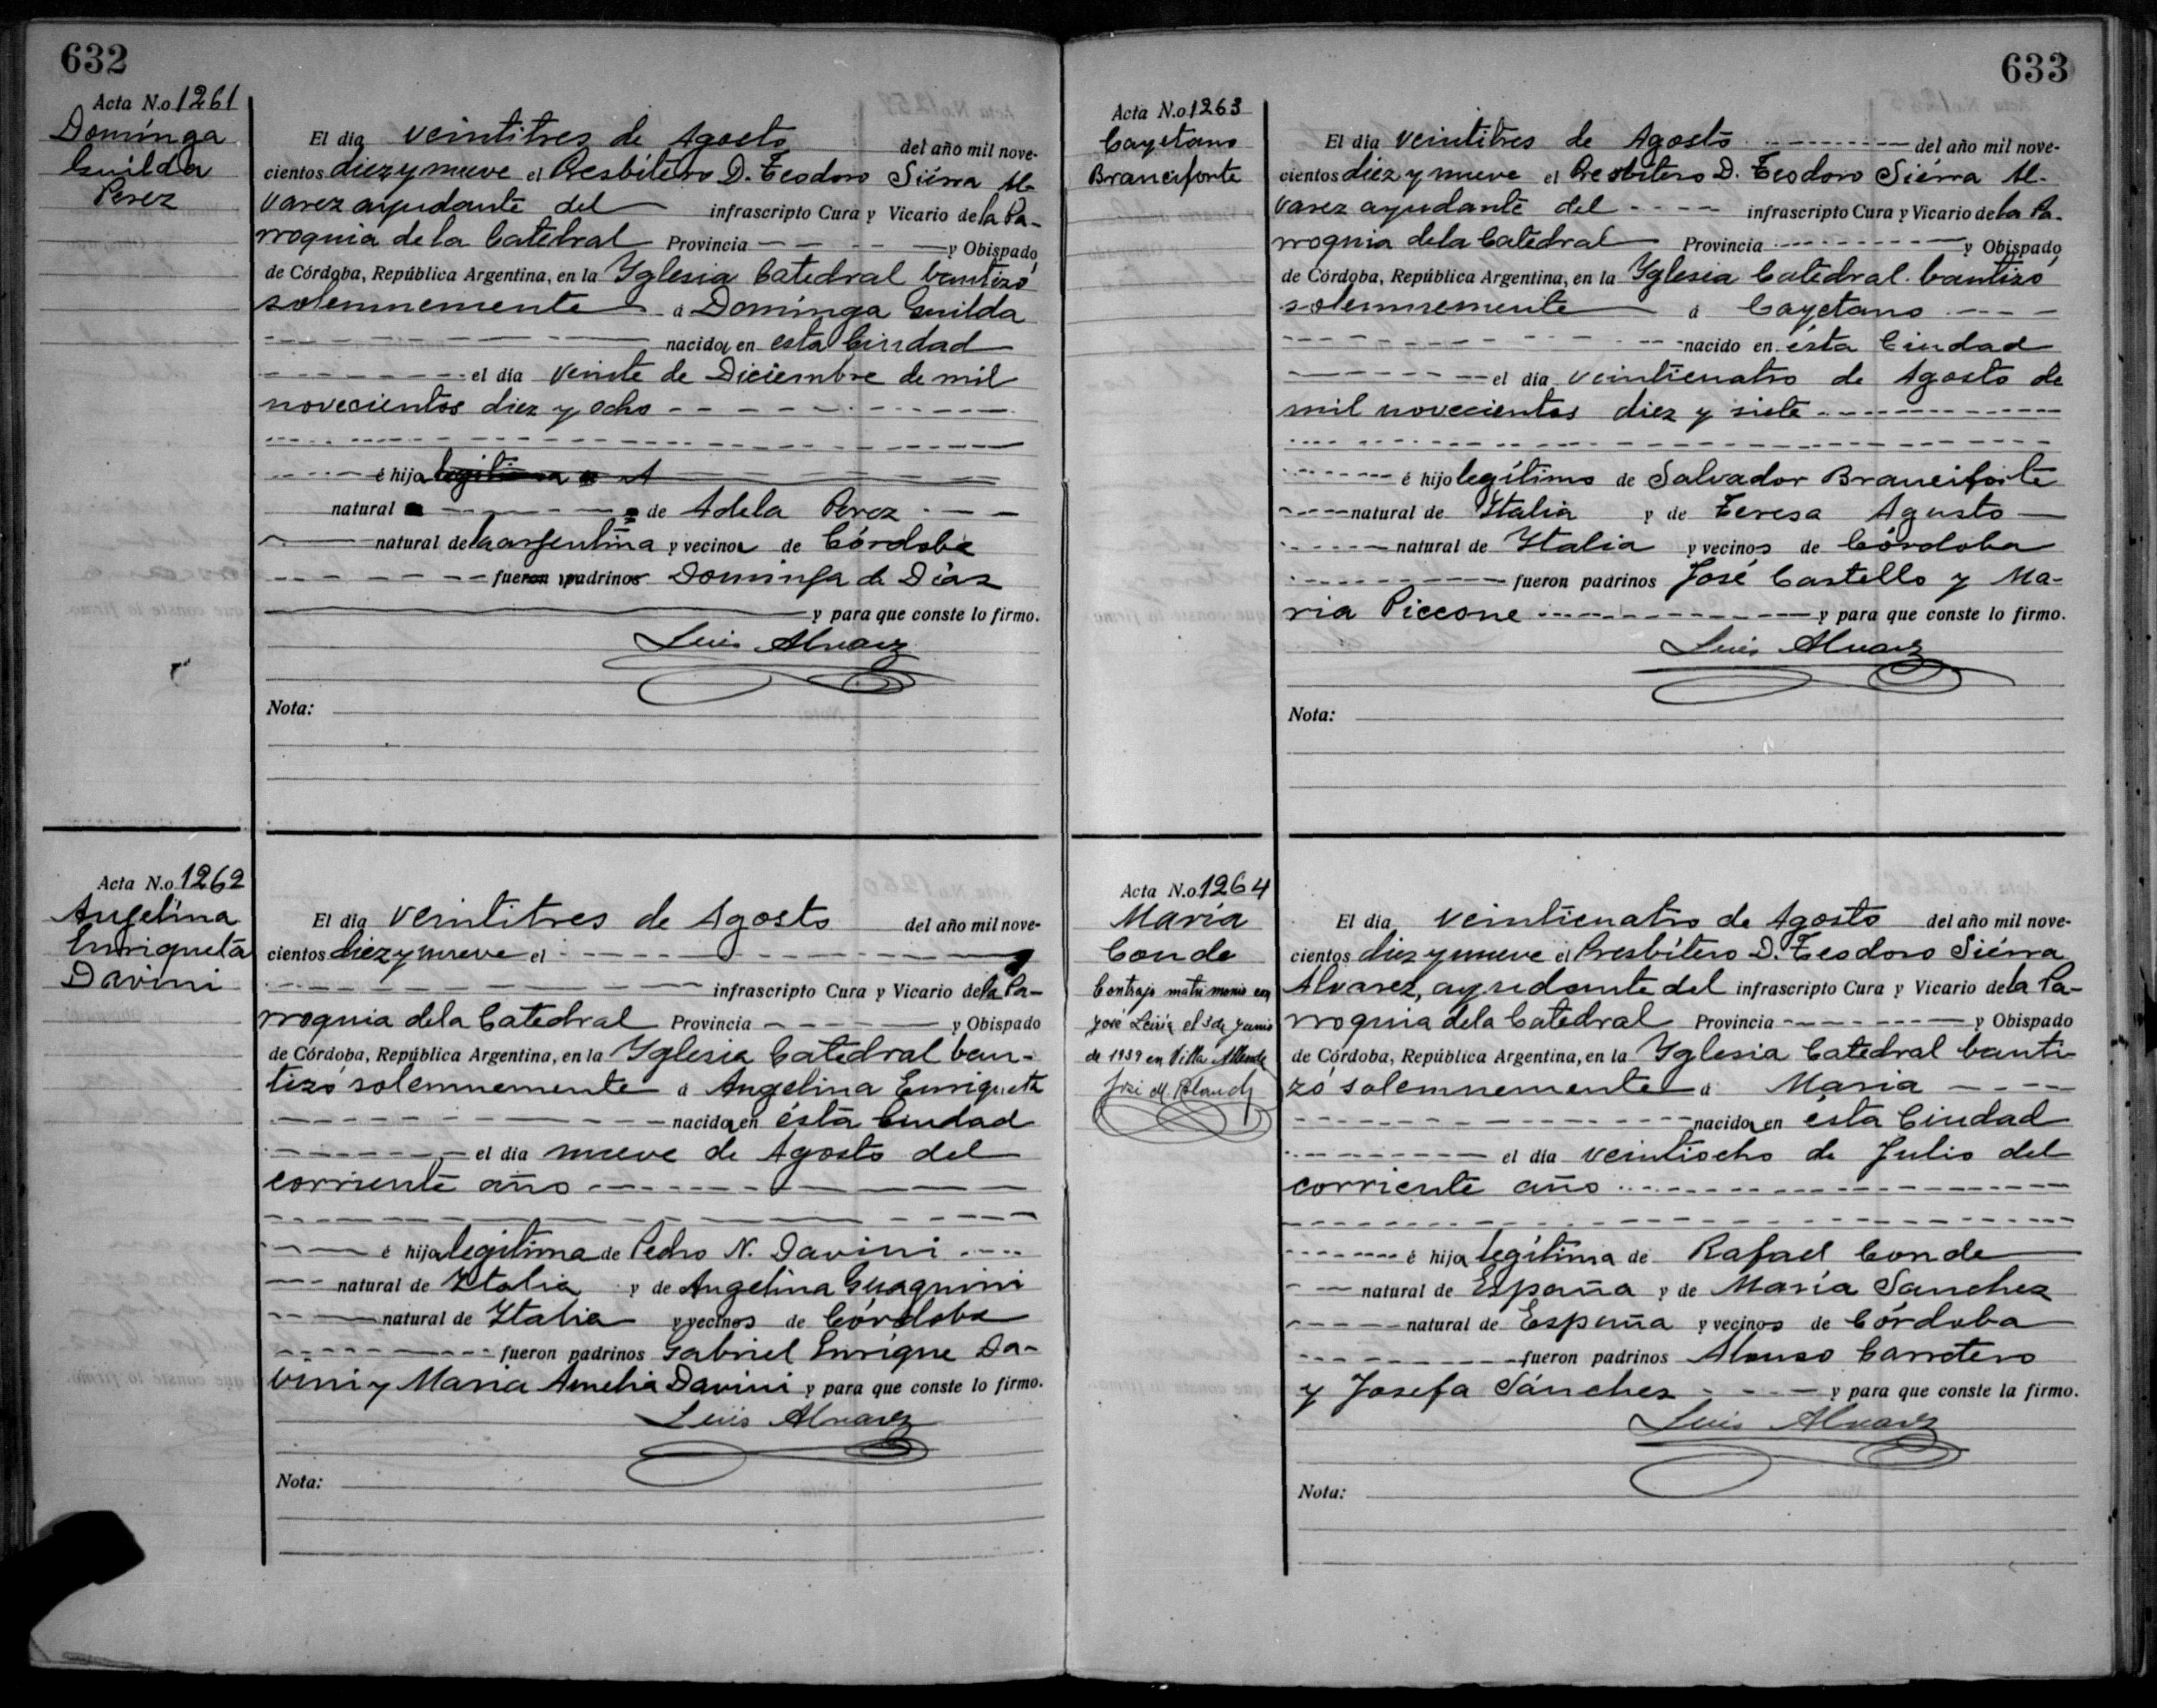 632
Acta N.o 1261
Domínga
Guilda
Perez
El dia veintitres de Agosto del año mil nove-
cientos diez y nueve el Presbítero D. Teodoro Siérra Al-
varez ayudante del infrascripto Cura y Vicario de la Pa-
rroquia de la Catedral Provincia y Obispado
de Córdoba, República Argentina, en la Yglesia Catedral bautizó
solemnemente á Domínga Guilda
nacida en esta Ciudad
el dia veinte de Diciembre de mil
novecientos diez y ocho
é hija
natural de Adela Perez
natural de la argentina y vecina de Córdoba
fue padrino Dominga de Díaz
y para que conste lo firmo.
Luis Alvarez
Nota:
Acta N.o 1262
Angelina
Enriqueta
Davini
El dia veintitres de Agosto del año mil nove-
cientos diez y nueve el
infrascripto Cura y Vicario de la Pa-
rroquia de la Catedral Provincia y Obispado
de Córdoba, República Argentina, en la Yglesia Catedral bau-
tizó solemnemente á Angelina Enriqueta
nacida en ésta Ciudad
el dia nueve de Agosto del
corriente año
é hija legítima de Pedro N. Davini
natural de Italia y de Angelina Guaquini
natural de Italia y vecinos de Córdoba
fueron padrinos Gabriel Enrique Da-
vini y Maria Amelia Davini y para que conste lo firmo.
Luis Alvarez
Nota:
633
Acta N.o 1263
Cayetano
Branciforte
El dia veintitres de Agosto del año mil nove-
cientos diez y nueve el Presbítero D. Teodoro Siérra Al-
varez ayudante del infrascripto Cura y Vicario de la Pa-
rroquia de la Catedral Provincia y Obispado
de Córdoba, República Argentina, en la Yglesia Catedral bautizó
solemnemente á Cayetano
nacido en ésta Ciudad
el dia veinticuatro de Agosto de
mil novecientos diez y siete
é hijo legítimo de Salvador Branciforte
natural de Italia y de Teresa Agusto
natural de Italia y vecinos de Córdoba
fueron padrinos José Castello y Ma-
ria Piccone y para que conste lo firmo.
Luis Alvarez
Nota:
Acta N.o 1264
María
Conde
Contrajo matrimonio con
José Leiría el 3 de Junio
de 1939 en Villa Allende
El dia veinticuatro de Agosto del año mil nove-
cientos diez y nueve el Presbítero D. Teodoro Siérra
Alvarez, ayudante del infrascripto Cura y Vicario de la Pa-
rroquia de la Catedral Provincia y Obispado
de Córdoba, República Argentina, en la Yglesia Catedral bauti-
zó solemnemente á Maria
nacida en ésta Ciudad
el dia veintiocho de Julio del
corriente año
é hija legítima de Rafael Conde
natural de España y de María Sanchez
natural de España y vecinos de Córdoba
fueron padrinos Alonso Carretero
y Josefa Sánchez y para que conste la firmo.
Luis Alvarez
Nota: